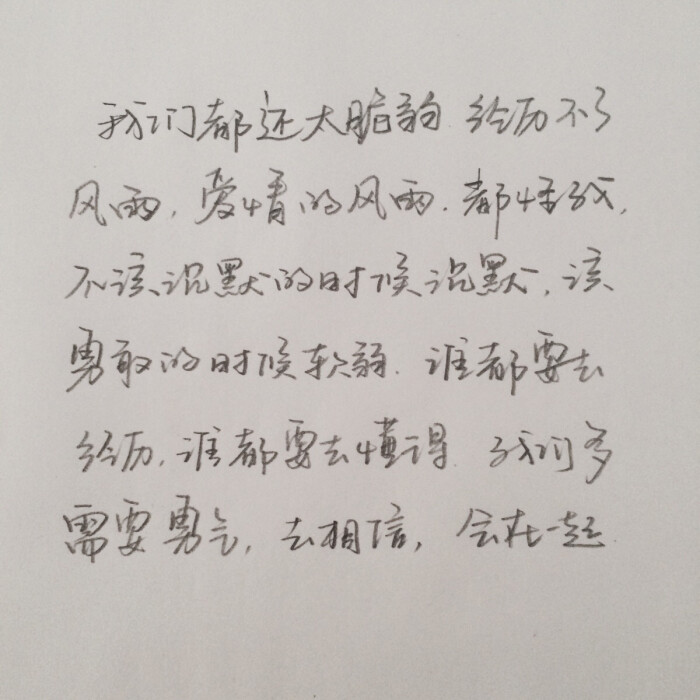 我们都还太脆弱 经历不了
风雨,爱情的风雨.都怪我,
不该沉默的时候沉默,该
勇敢的时候软弱.谁都要去
经历,谁都要去懂得 我们多
需要勇气,去相信,会在一起